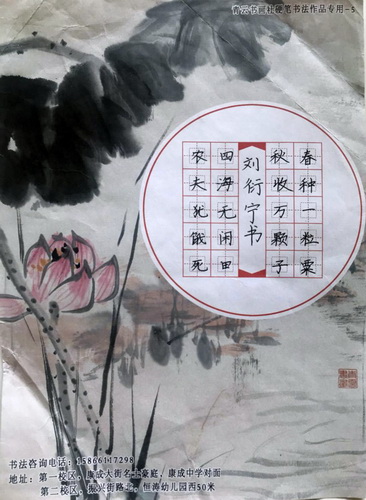 青云书画社硬笔书法作品专用-5
春种一粒粟
秋收万颗子
刘衍宁书
四海无闲田
农夫犹饿死
书法咨询电话：15866117298
地址：第一校区，康成大街名士豪庭，康成中学对面
第二校区，振兴街路北，恒涛幼儿园西50米